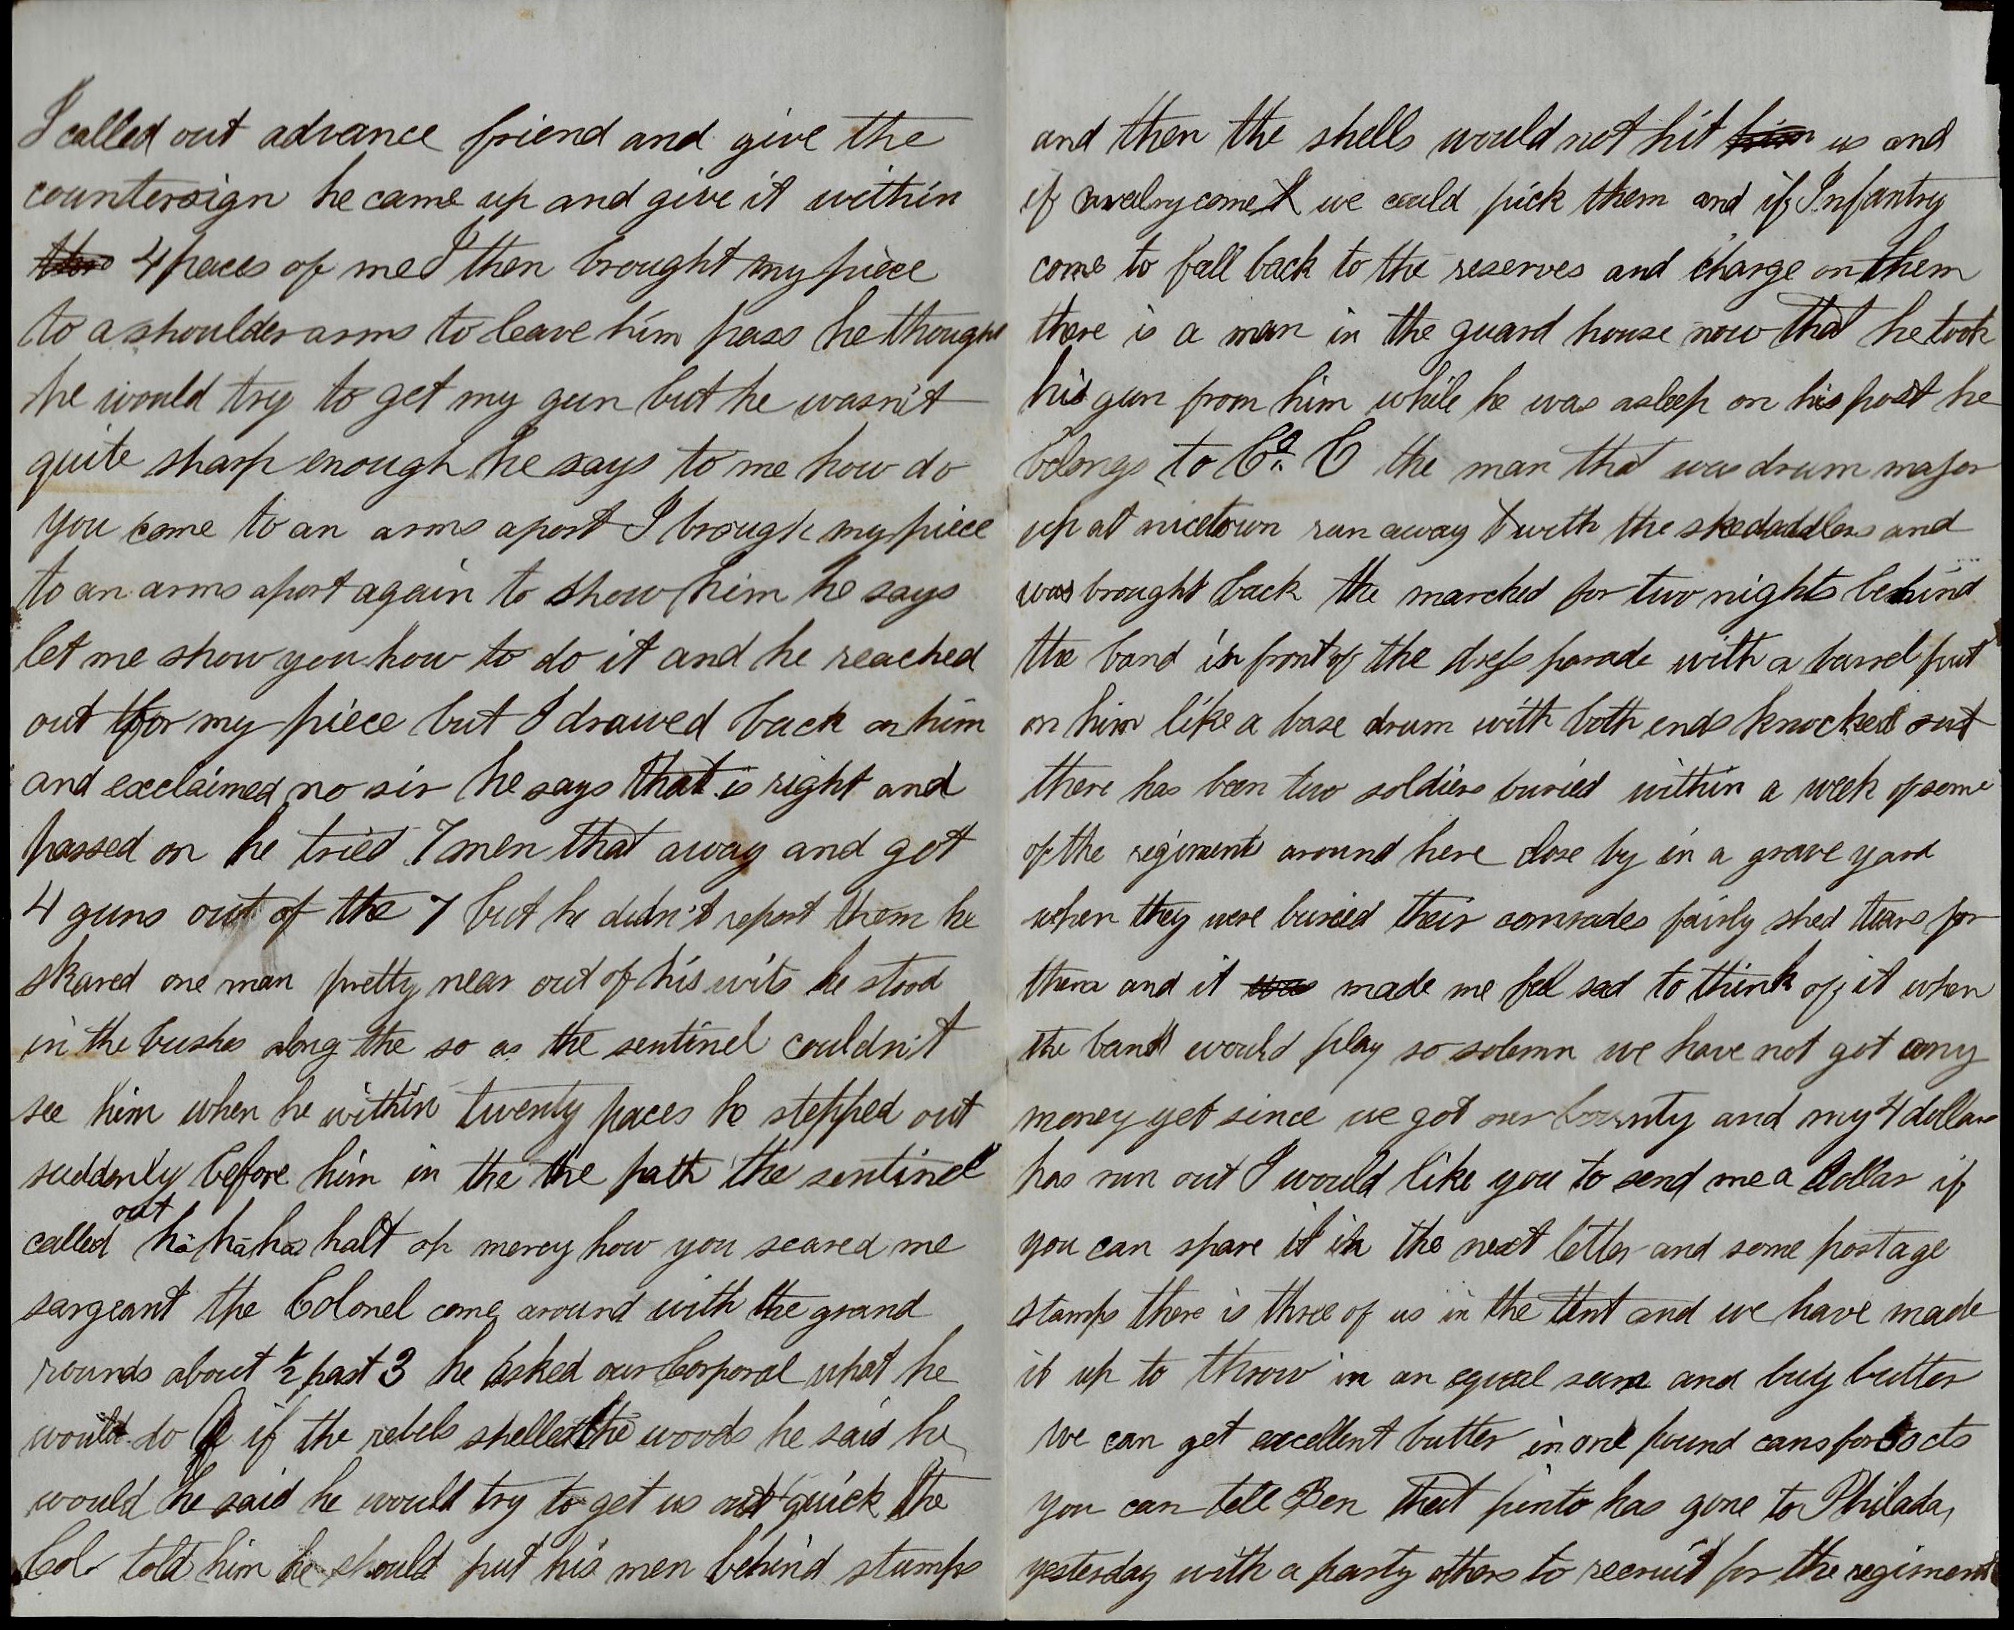 I called out advance friend and give the
countersign he came up and give it within
4 paces of me I then brought my piece
to a shoulder arms to leave him pass he thought
he would try to get my gun but he wasn't
quite sharp enough he says to me how do
you come to an arms aport I brough my piece
to an arms aport again to show him he says
let me show you how to do it and he reached
out for my piece but I drawed back on him
and exclaimed no sir he says that is right and
passed on he tried 7 men that away and got
4 guns out of the 7 but he didn't report them he
skared one man pretty near out of his wits he stood
in the bushes along the so as the sentinel couldn't
see him when he within twenty paces he stepped out
suddenly before him in the the path the sentinel
called out ha ha ha halt oh mercy how you scared me
sargeant the Colonel come around with the grand
rounds about ½ past 3 he asked our Corporal what he
would do if the rebels shelled the woods he said he
would he said he would try to get us out quick the
Col. told him he should put his men behind stumps
and then the shells would not hit him us and
if cavalry come we could pick them and if Infantry
come to fall back to the reserves and charge on them
there is a man in the guard house now that he took
his gun from him while he was asleep on his post he
belongs to Co. C the man that was drum major
up at nicetown run away with the skedaddlers and
was brought back the marched for two nights behind
the band in front of the dress parade with a barrel put
on him like a base drum with both ends knocked out
there has been two soldiers buried within a week of some
of the regiments around here close by in a grave yard
when they were buried their comrades fairly shed tears for
them and it was made me feel sad to think of it when
the band would play so solemn we have not got any
money yet since we got our bounty and my 4 dollars
has run out I would like you to send me a dollar if
you can spare it in the next letter and some postage
stamps there is three of us in the tent and we have made
it up to throw in an equal sum and buy butter
we can get excellent butter in one pound cans for cts
you can tell Ben that pinto has gone to Philada,
yesterday with a party others to recruit for the regiment